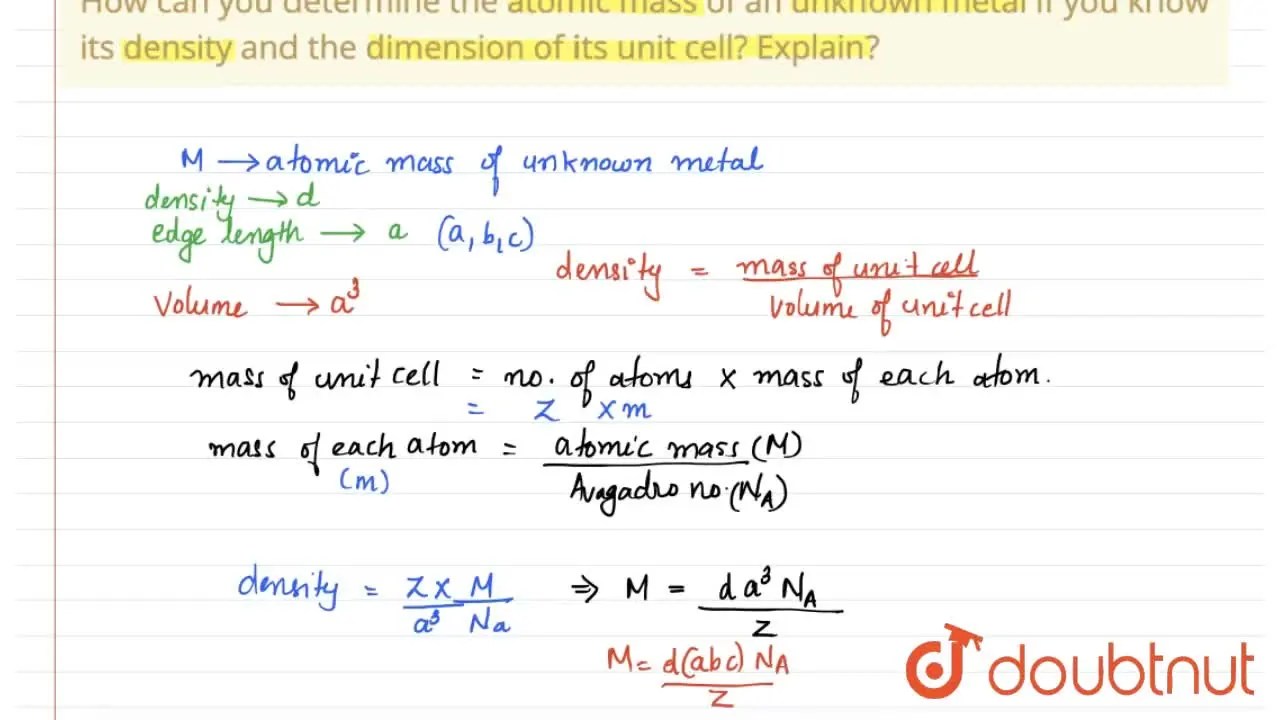 How can you determine the atomic mass of an unknown metal if you know
its density and the dimension of its unit cell? Explain?
M → atomic mass of unknown metal
density → d
edge length → a (a, b, c)
density = mass of unit cell / volume of unit cell
Volume → a³
mass of unit cell = no. of atoms × mass of each atom.
= Z × m
mass of each atom = atomic mass (M) / Avagadro no. (N_A)
(m)
density = Z × M / a³ Na ⇒ M = d a³ N_A / Z
M = d(abc) N_A / Z
doubtnut